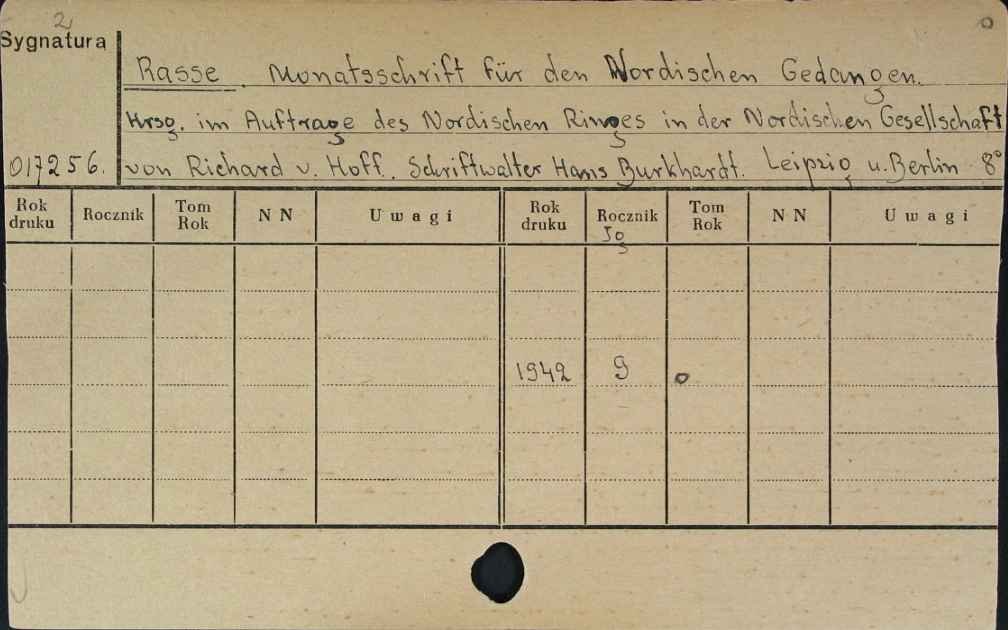 2
Sygnatura
Rasse. Monatsschrift für den Nordischen Gedangen.
Hrsg. im Auftrage des Nordischen Ringes in der Nordischen Gesellschaft
017256. von Richard v. Hoff. Schriftwalter Hans Burkhardt. Leipzig u. Berlin 8°
Rok druku Rocznik Tom Rok N N Uwagi Rok druku Rocznik Tom Rok N N Uwagi
Jg
1942 9